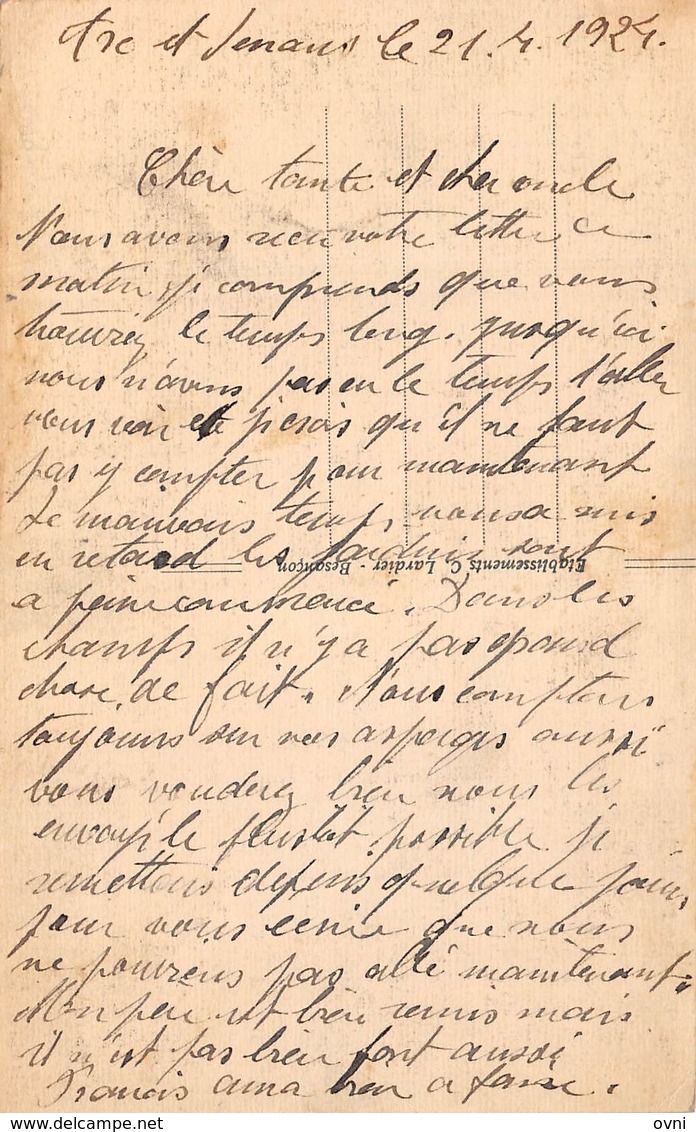 Arc et Senans le 21.4.1924.
Chère tante et cher oncle
Nous avons reçu votre lettre ce
matin, je comprends que vous
trouvrez le temps long. jusqu'ici
nous n'avons pas eu le temps d'aller
vous voir et je crois qu'il ne faut
pas y compter pour maintenant
Le mauvais temps nous a mis
en retard les jardins sont
Etablissements C. Lardier - Besançon
a peine commencé. Dans les
champs il n'y a pas grand
chose de fait. Nous comptons
toujours sur vos asperges aussi
vous vouderez bien nous les
envoyé le plustôt possible je
remettais depuis quelque jours
pour vous ecrire que nous
ne pourrons pas allé maintenant.
Mon père est bien remis mais
il n'est pas bien fort aussi
Francis aura bien a faire.
ovni